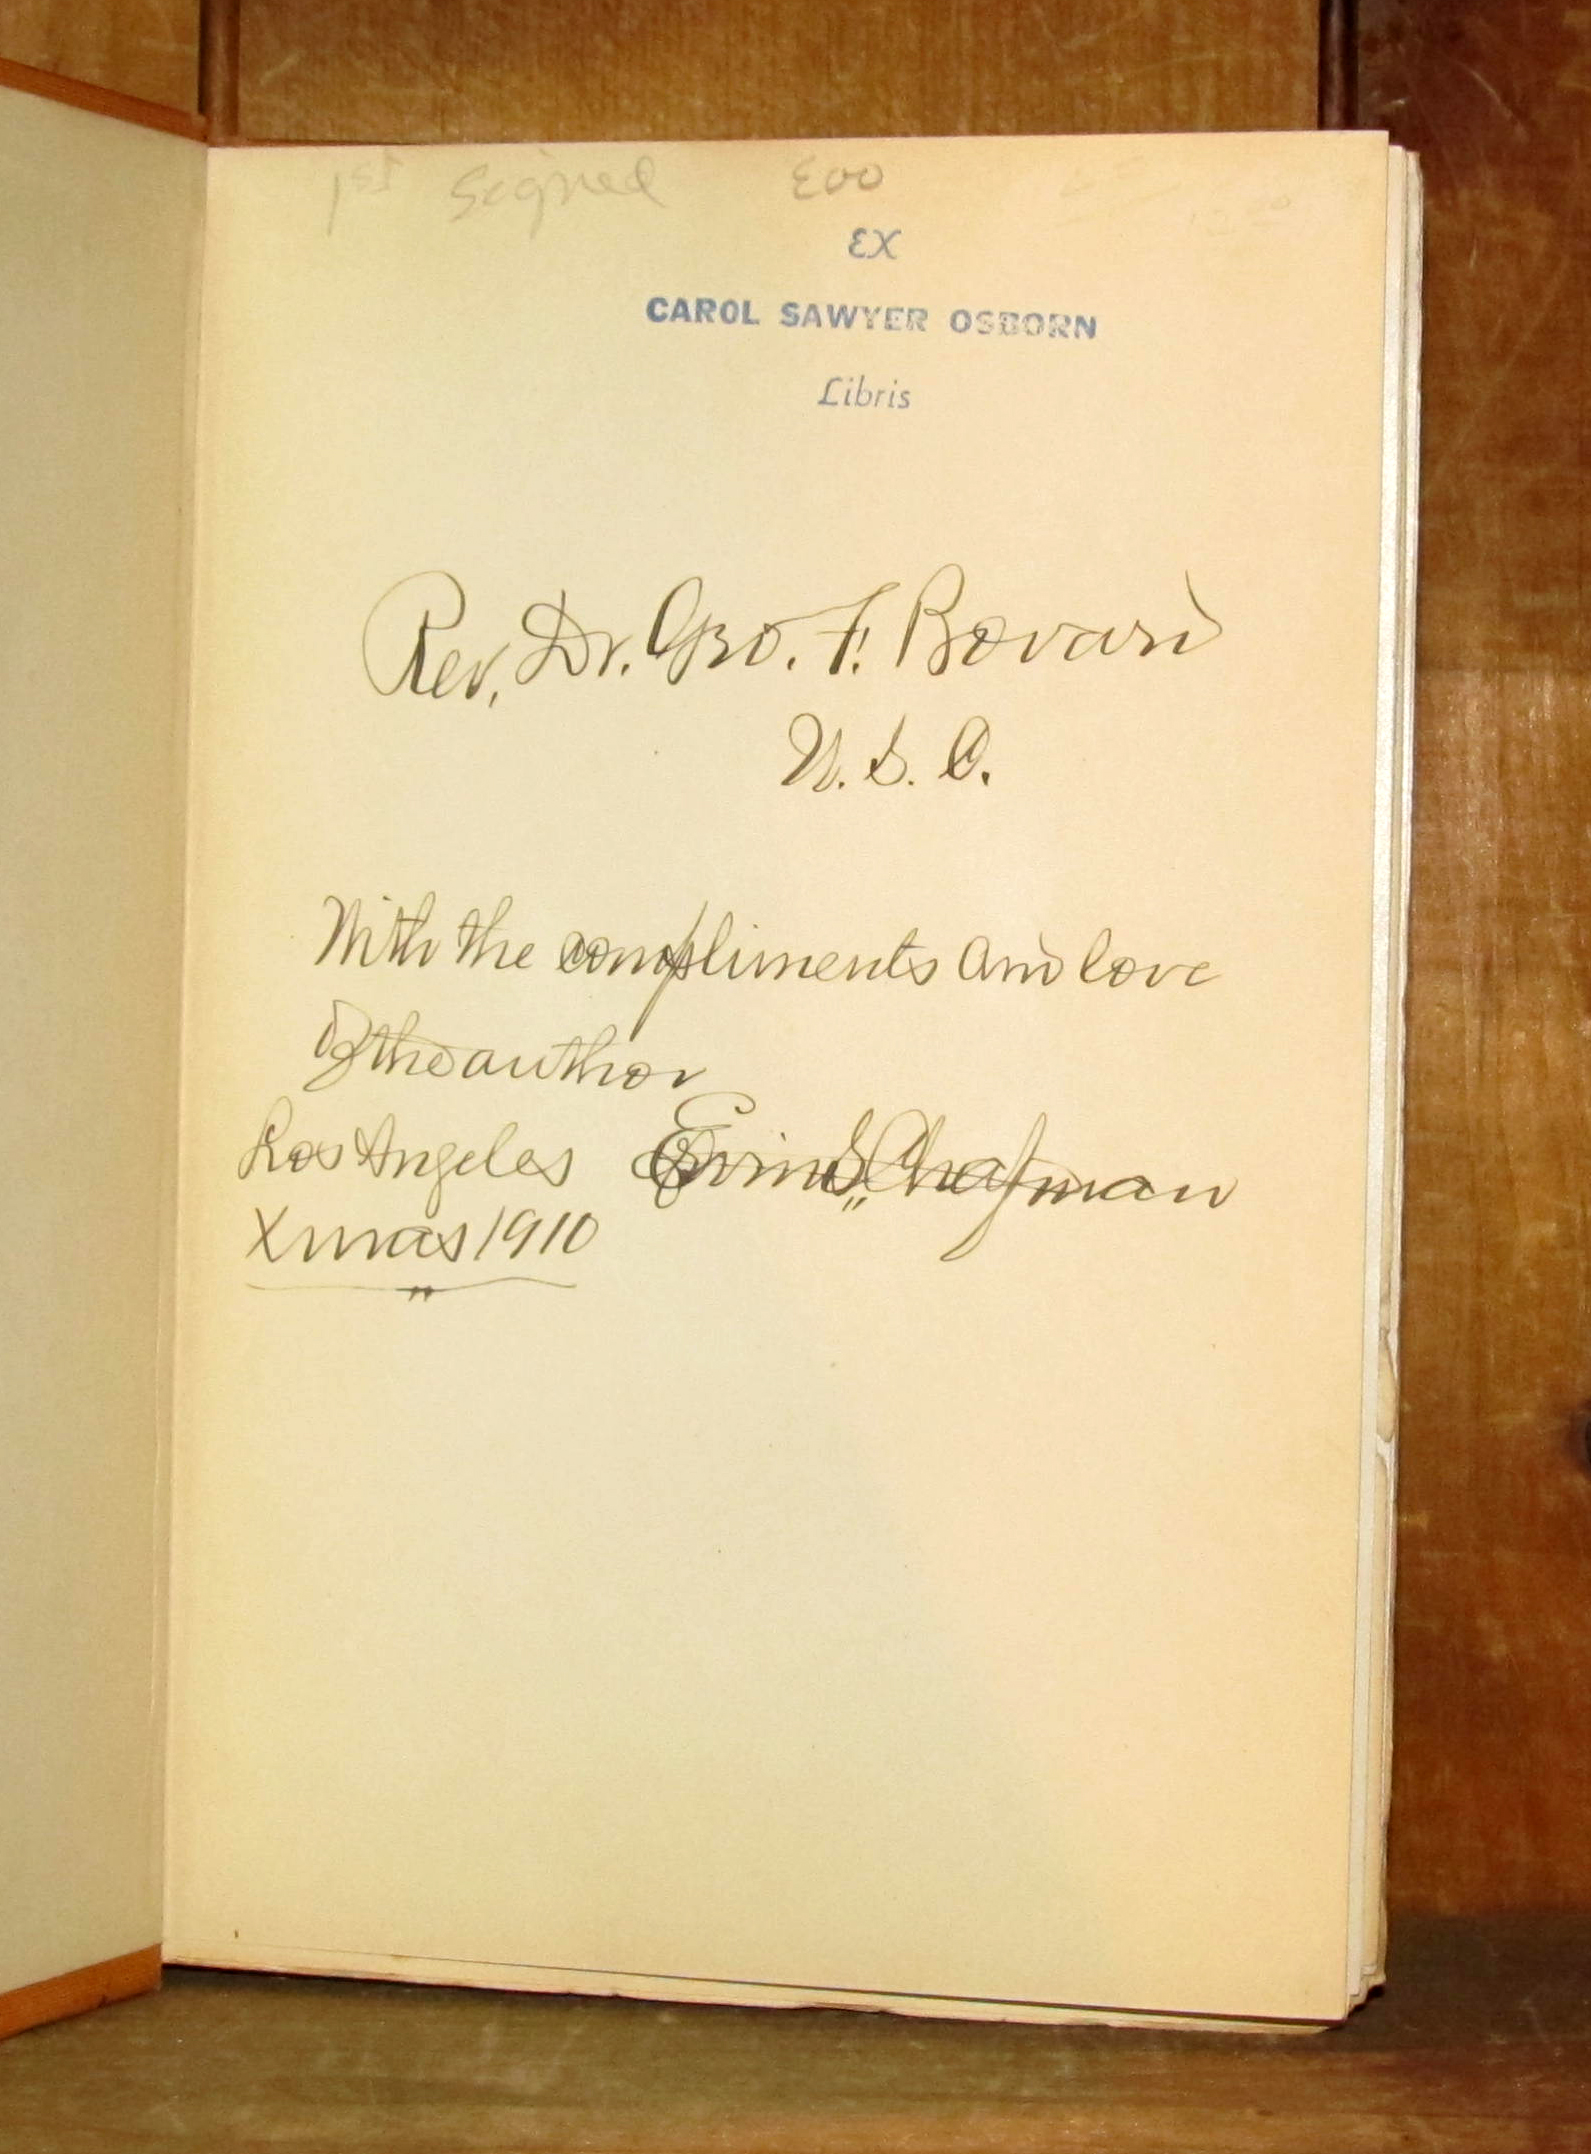 1st Signed E00
EX
CAROL SAWYER OSBORN
Libris
Rev. Dr. Geo. F. Bovard
U. S. C.
With the compliments and love
Of the author
Los Angeles Ervin S. Chapman
Xmas 1910